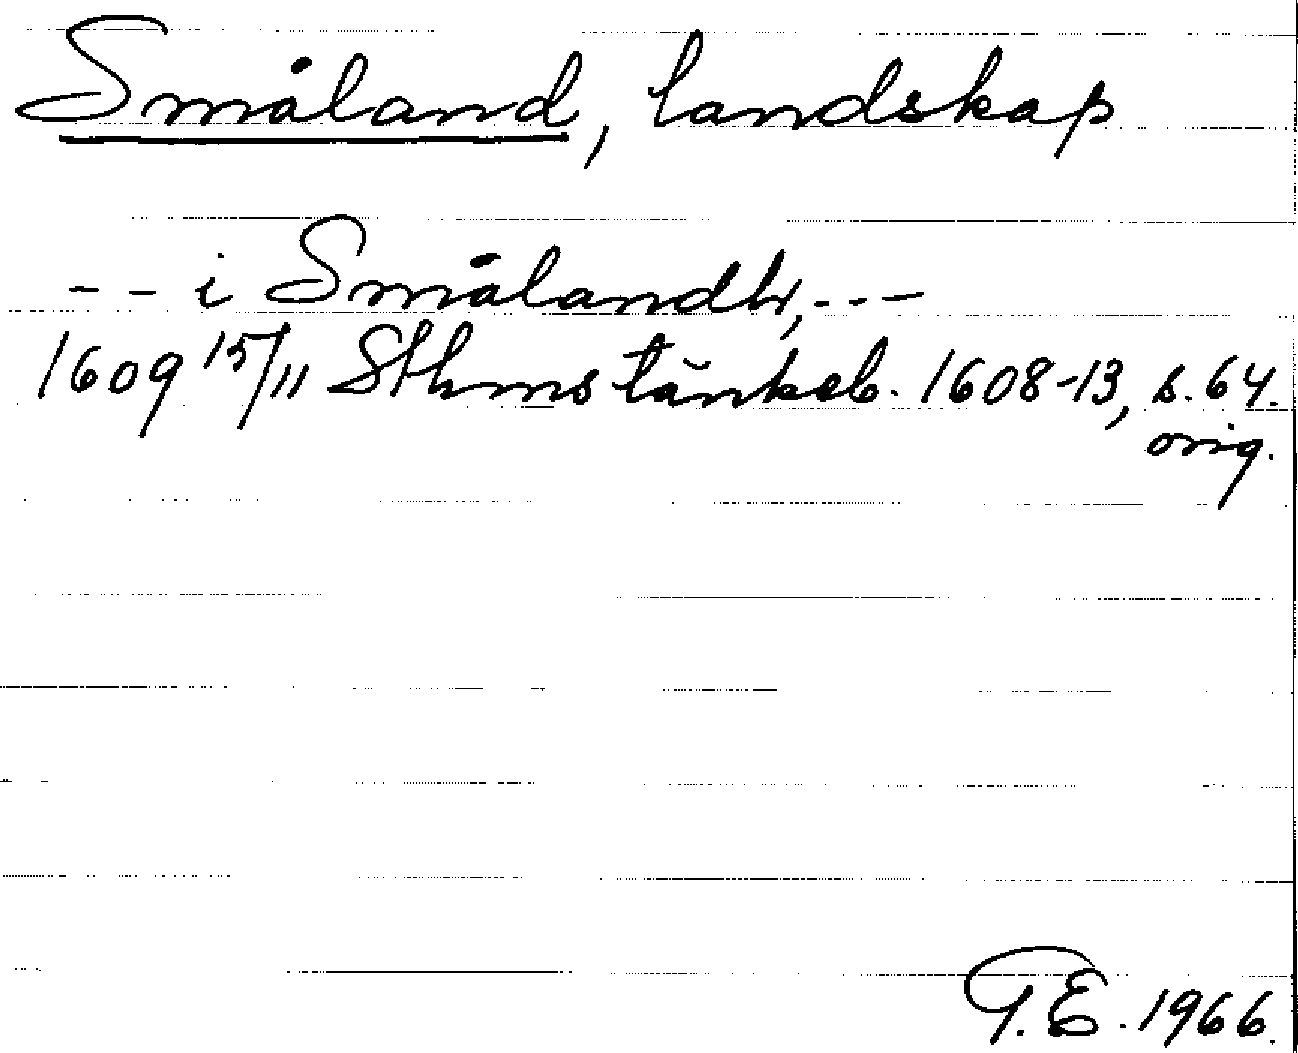 Småland, landskap
-- i Smålandh, ---
1609 15/11 Sthms tänkeb. 1608-13, s. 64.
orig.
G.E. 1966.